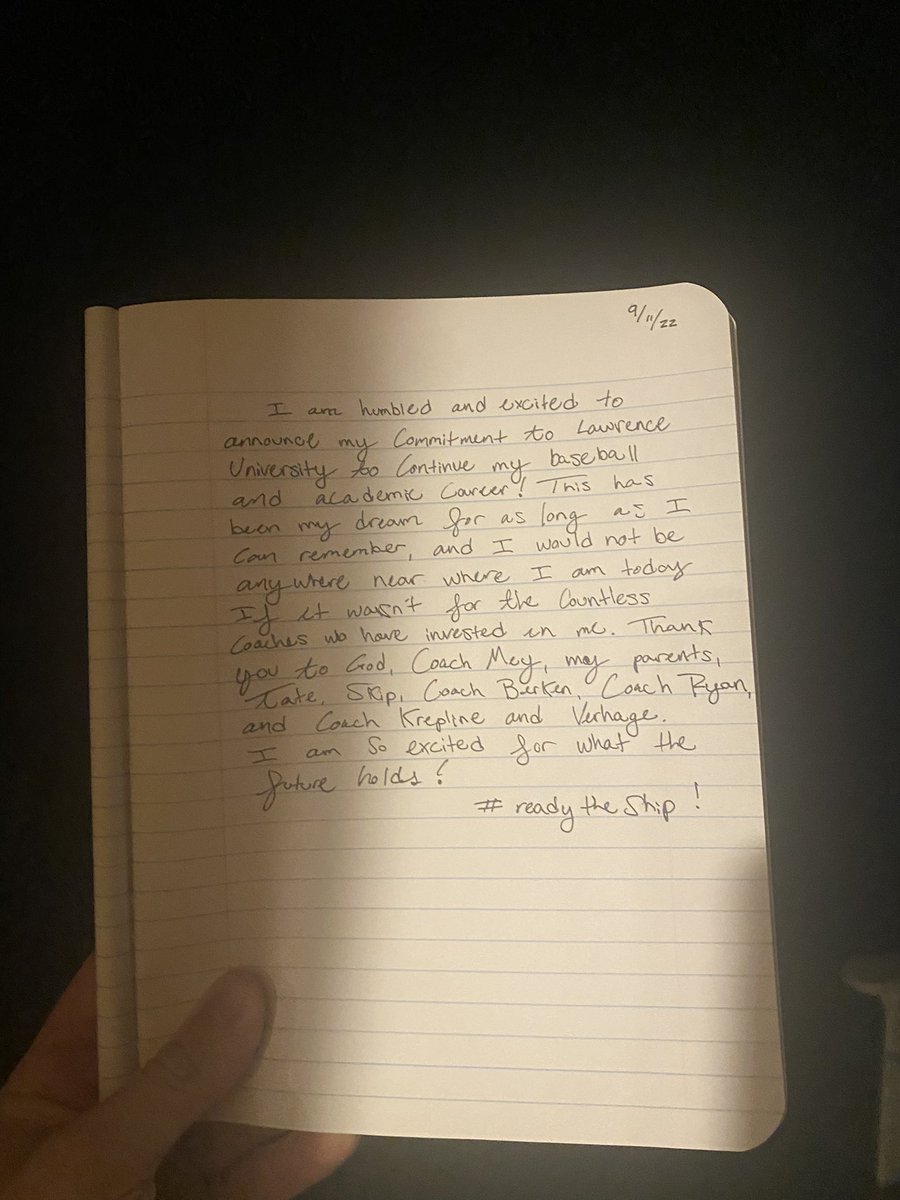 9/11/22
I am humbled and excited to
announce my Commitment to Lawrence
University to Continue my baseball
and academic Career! This has
been my dream for as long as I
Can remember, and I would not be
anywhere near where I am today
If it wasn't for the Countless
Coaches who have invested in me. Thank
you to God, Coach Mey, my parents,
Tate, Skip, Coach Berken, Coach Ryan,
and Coach Krepline and Verhage.
I am So excited for what the
future holds!
# ready the Ship!